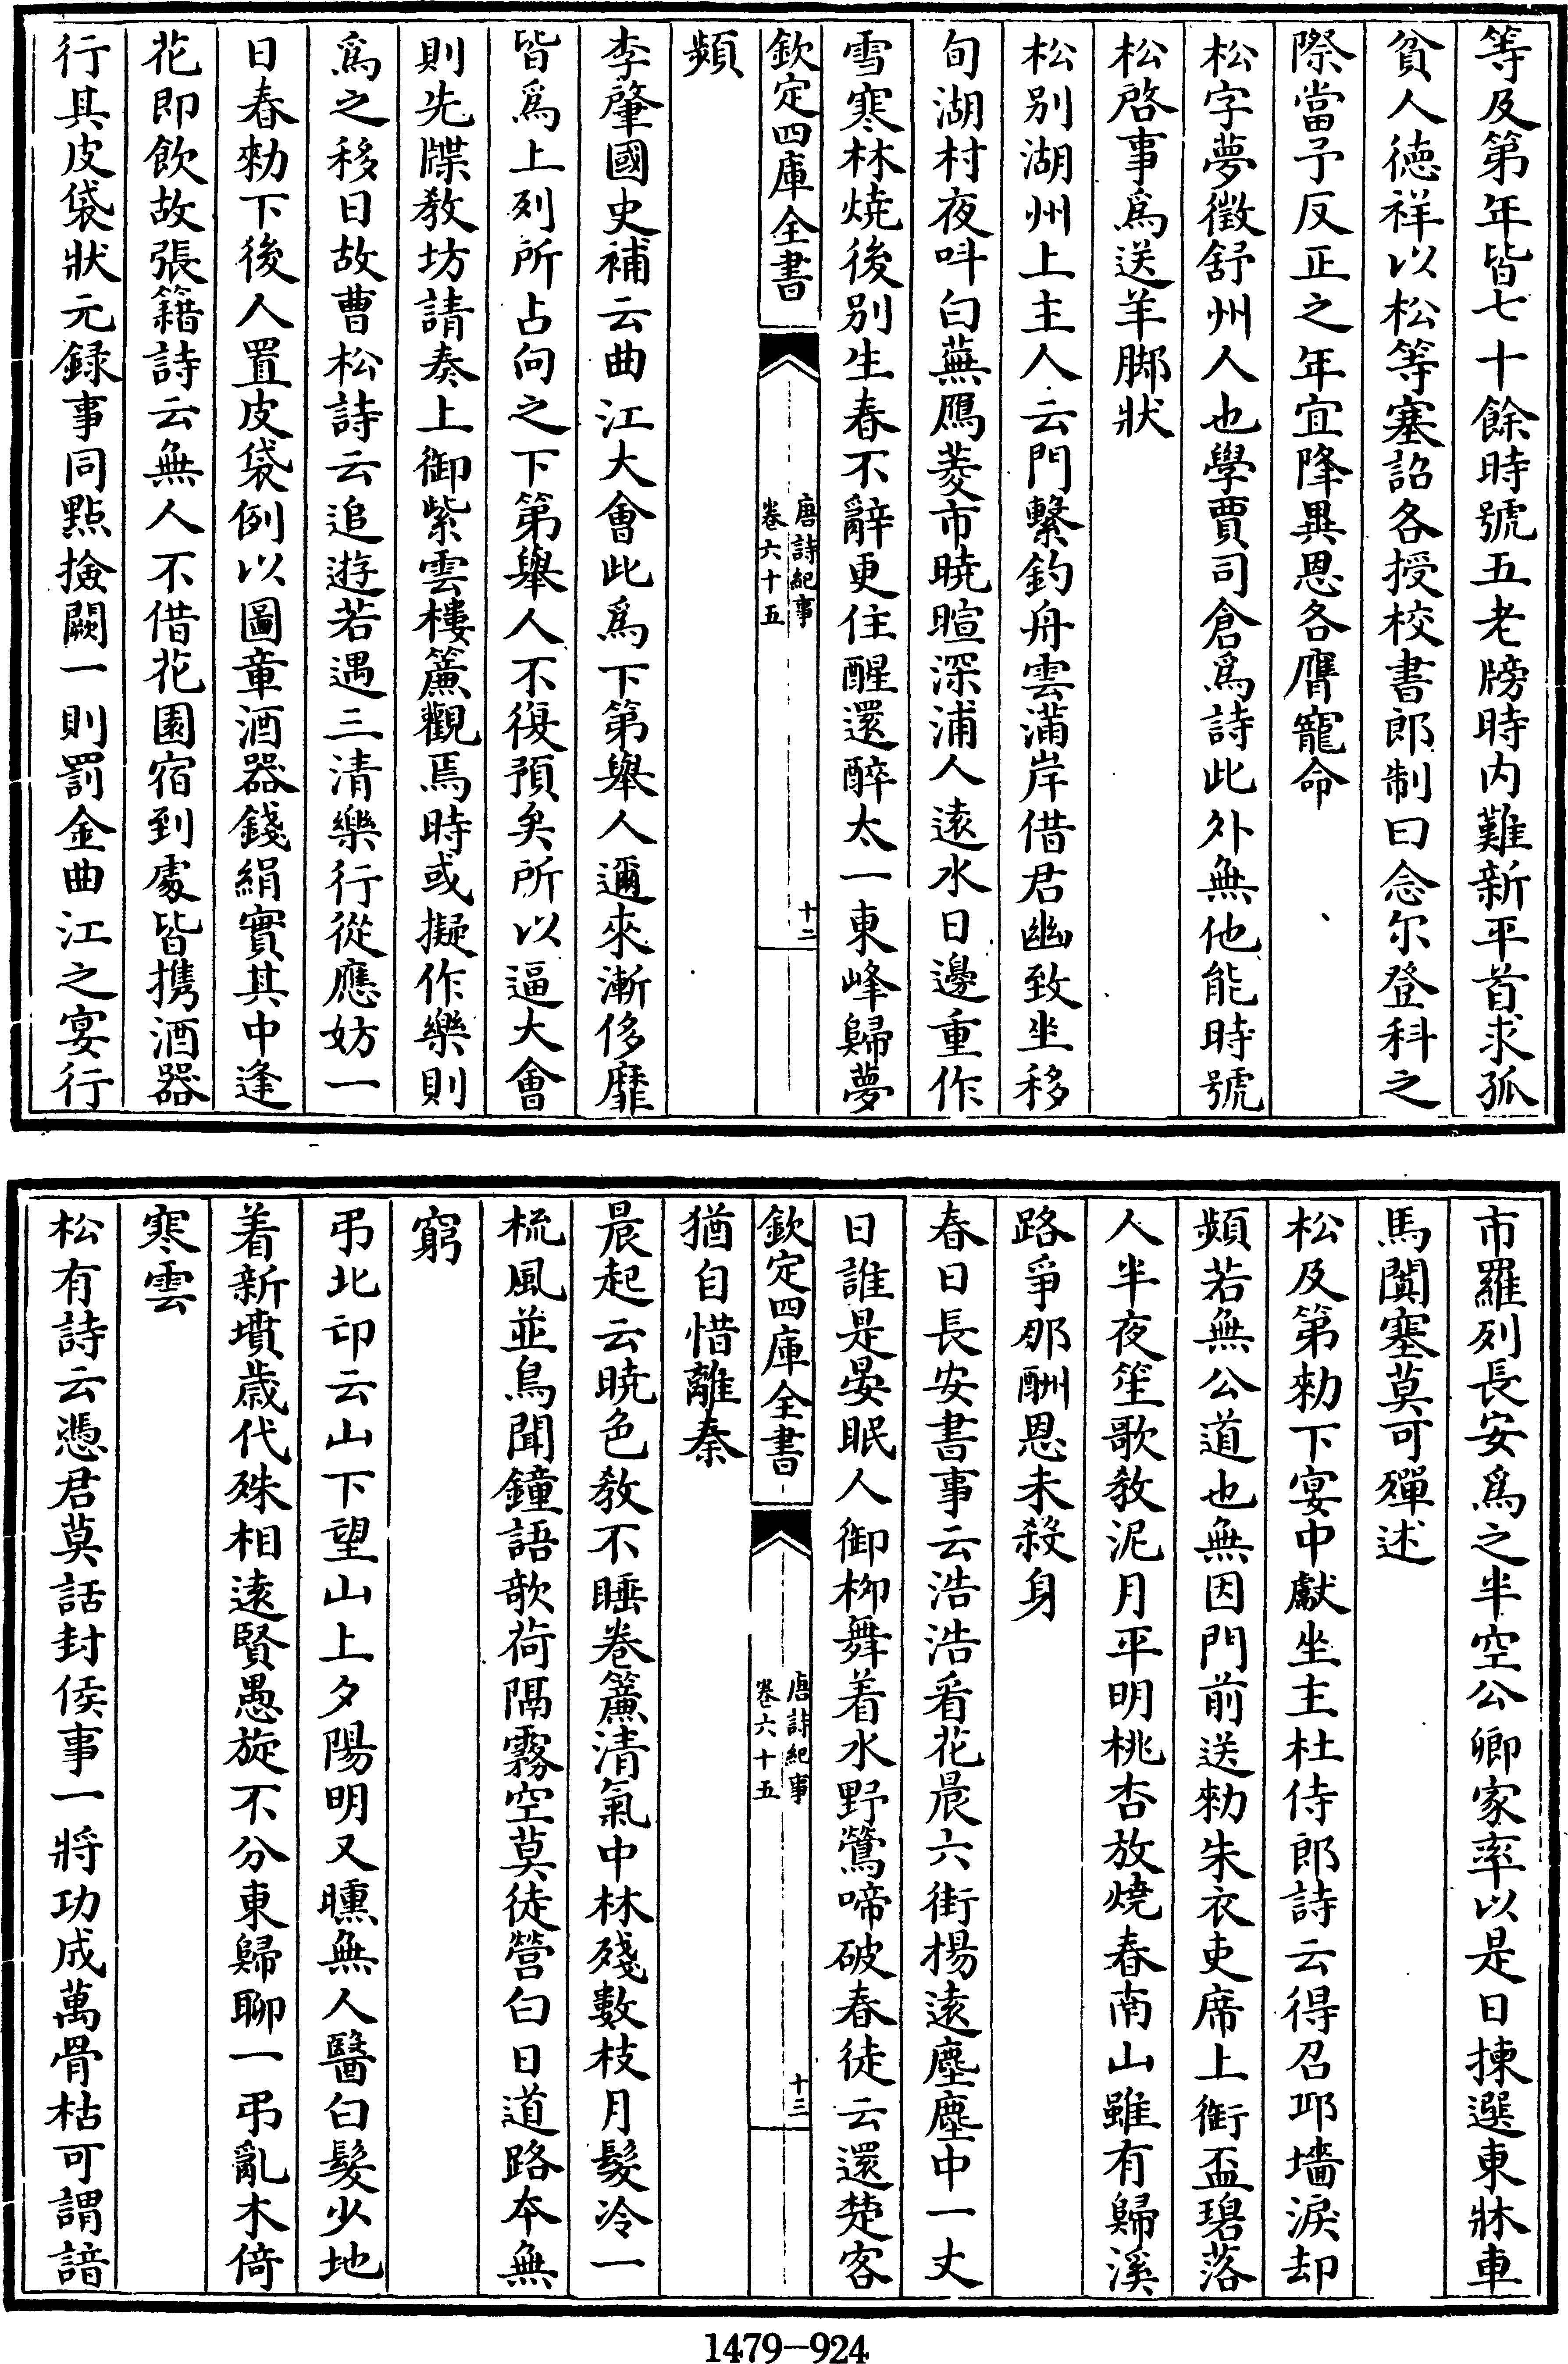 等及第年皆七十餘時號五老牓時内難新平首求孤
貧人徳祥以松等塞詔各授校書郎制曰念尔登科之
際當予反正之年宜降異恩各膺寵命
松字夢徵舒州人也學賈司倉爲詩此外無他能時號
松啓事爲送羊脚狀
松别湖州上主人云門繫釣舟雲滿岸借君幽致坐移
旬湖村夜叫白蕪鴈菱市曉暄深浦人遠水日邊重作
雪寒林燒後别生春不辭更住醒還醉太一東峰歸夢
欽定四庫全書
唐詩紀事
卷六十五
十二
頻
李肇國史補云曲江大會此爲下第舉人邇來漸侈靡
皆爲上列所占向之下第舉人不復預矣所以逼大會
則先牒教坊請奏上御紫雲樓簾觀焉時或擬作樂則
爲之移日故曹松詩云追遊若遇三清樂行從應妨一
日春勅下後人置皮袋例以圖章酒器錢絹實其中逢
花即飲故張籍詩云無人不借花園宿到處皆攜酒器
行其皮袋狀元録事同點撿闕一則罰金曲江之宴行
市羅列長安爲之半空公卿家率以是日揀選東牀車
馬闐塞莫可殫述
松及第勅下宴中獻坐主杜侍郎詩云得召邛墻淚却
頻若無公道也無因門前送勅朱衣吏席上銜盃碧落
人半夜笙歌教泥月平明桃杏放燒春南山雖有歸溪
路爭那酬恩未殺身
春日長安書事云浩浩看花晨六街揚遠塵塵中一丈
日誰是晏眠人御柳舞着水野鶯啼破春徒云還楚客
猶自惜離秦
欽定四庫全書
唐詩紀事
卷六十五
十三
晨起云曉色教不睡卷簾清氣中林殘數枝月髪冷一
梳風並鳥聞鐘語欹荷隔霧空莫徒營白日道路本無
窮
弔北邙云山下望山上夕陽明又曛無人醫白髮少地
着新墳歲代殊相遠賢愚旋不分東歸聊一弔亂木倚
寒雲
松有詩云憑君莫話封侯事一將功成萬骨枯可謂諳
1479-924